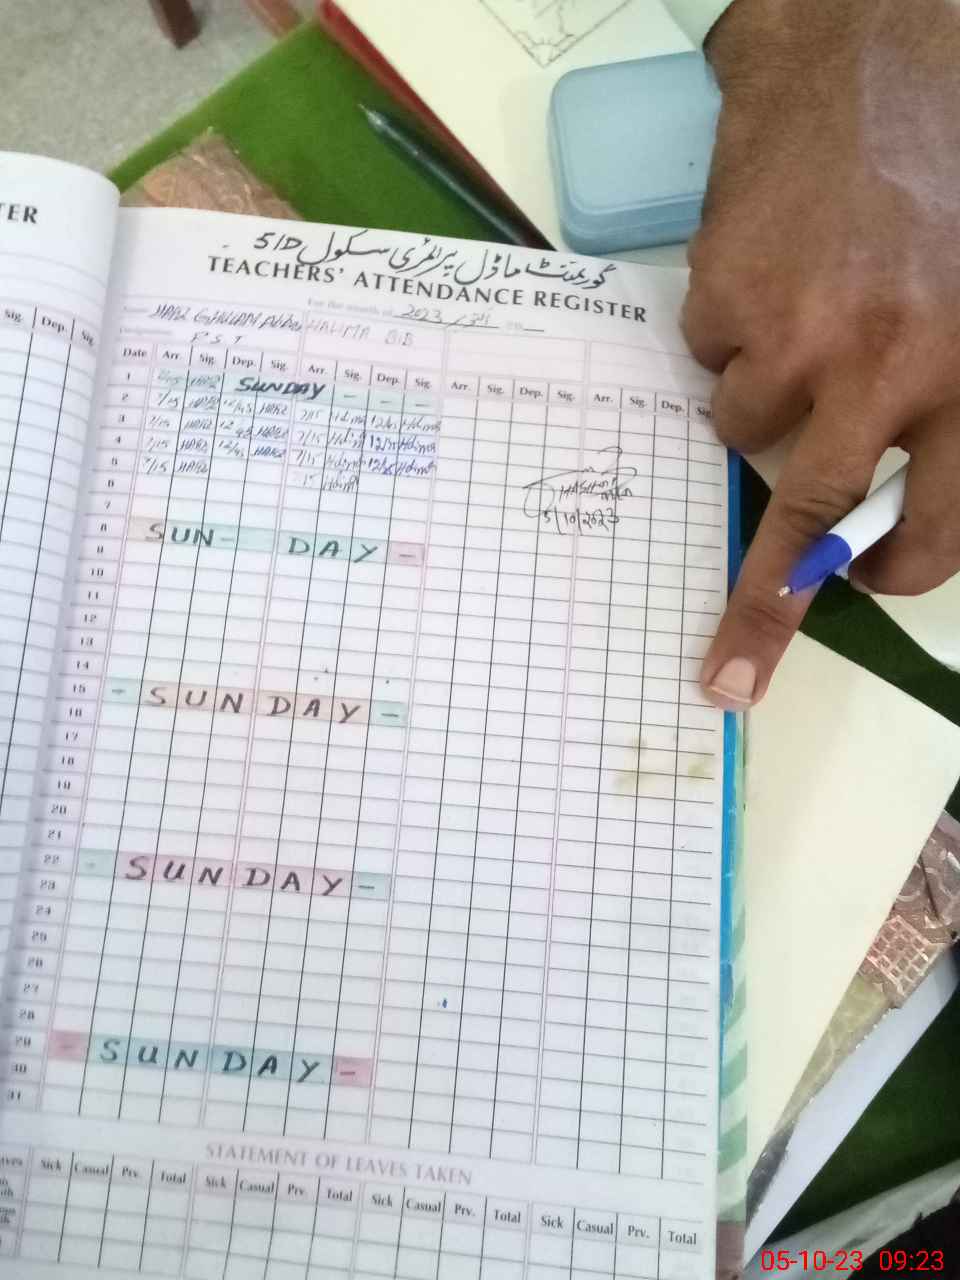 TER
گورنمنٹ ماڈل پرائمری سکول 51D
TEACHERS' ATTENDANCE REGISTER
For the month of 2023
HALIMA BIB
P S T
Sig. Dep. Sig.
Date Arr. Sig. Dep. Sig. Arr. Sig. Dep. Sig. Arr. Sig. Dep. Sig. Arr. Sig. Dep. Sig.
1 SUNDAY - - -
2 7/15 HAPZ 12/45 HAPZ 7/15 12/45
3 7/15 HAPZ 12/45 HAPZ 7/15 12/45
4 7/15 HAPZ 12/45 HAPZ 7/15 12/45
5 7/15 HAPZ
6
7
5/10/2023
8 SUN- DAY -
9
10
11
12
13
14
15 - SUNDAY -
16
17
18
19
20
21
22 - SUNDAY -
23
24
25
26
27
28
29 - SUNDAY -
30
31
STATEMENT OF LEAVES TAKEN
Sick Casual Prv. Total Sick Casual Prv. Total Sick Casual Prv. Total Sick Casual Prv. Total
05-10-23 09:23